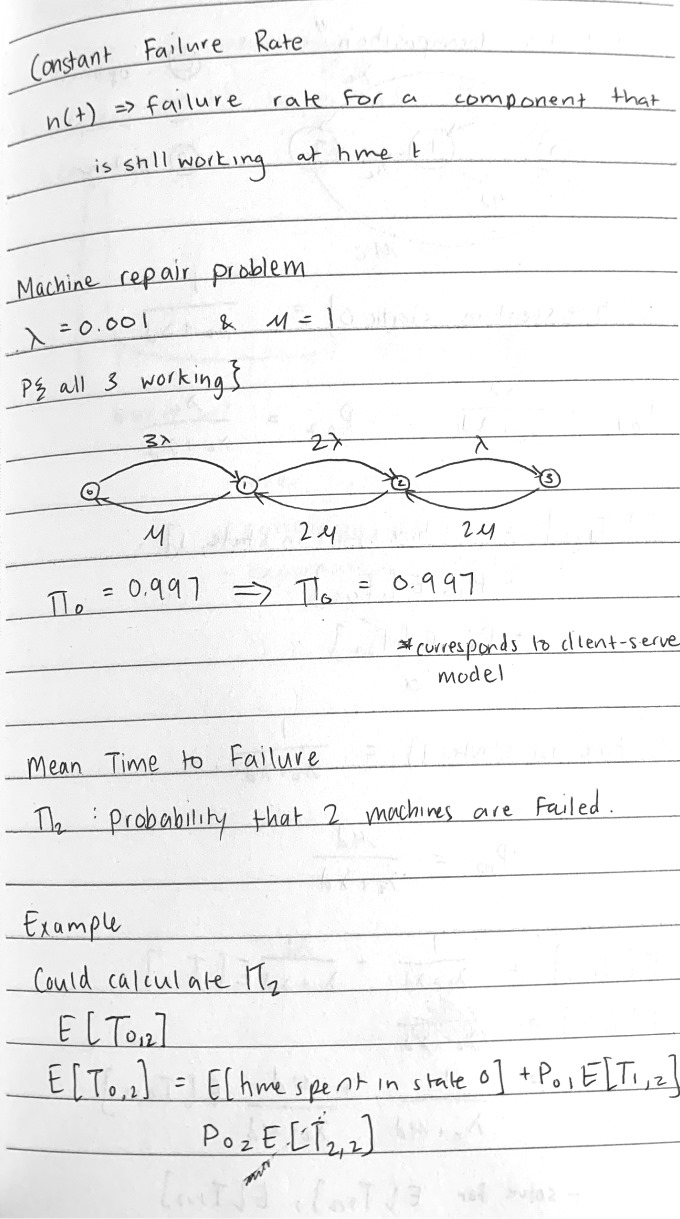 Constant Failure Rate
n(t) => failure rate for a component that
is still working at time t
Machine repair problem
λ = 0.001 & μ = 1
P{ all 3 working}
3λ 2λ λ
0 1 2 3
μ 2μ 2μ
Π₀ = 0.997 => Π₀ = 0.997
*corresponds to client-serve
model
Mean Time to Failure
Π₂ : probability that 2 machines are failed.
Example
Could calculate Π₂
E[T₀,₂]
E[T₀,₂] = E[time spent in state 0] + P₀₁ E[T₁,₂]
P₀₂ E[T₂,₂]